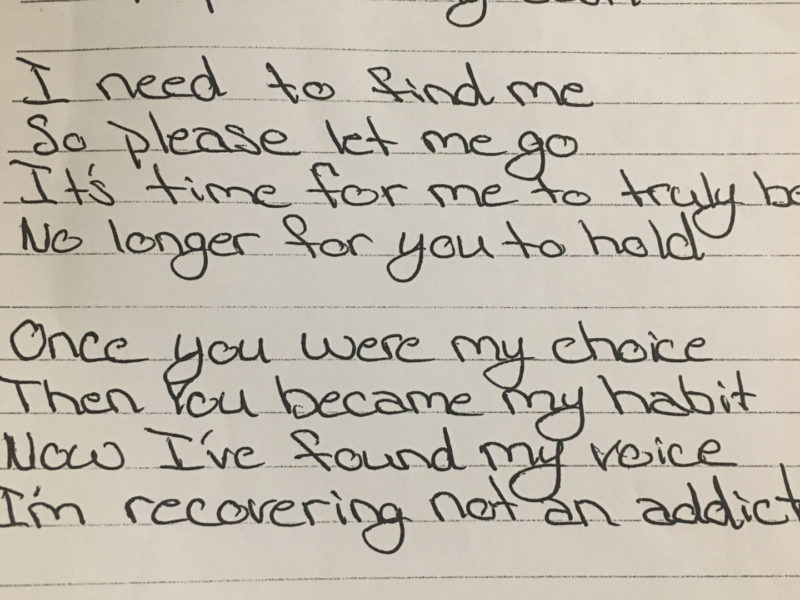 I need to find me
So please let me go
It's time for me to truly be
No longer for you to hold
Once you were my choice
Then You became my habit
Now I've found my voice
I'm recovering not an addict